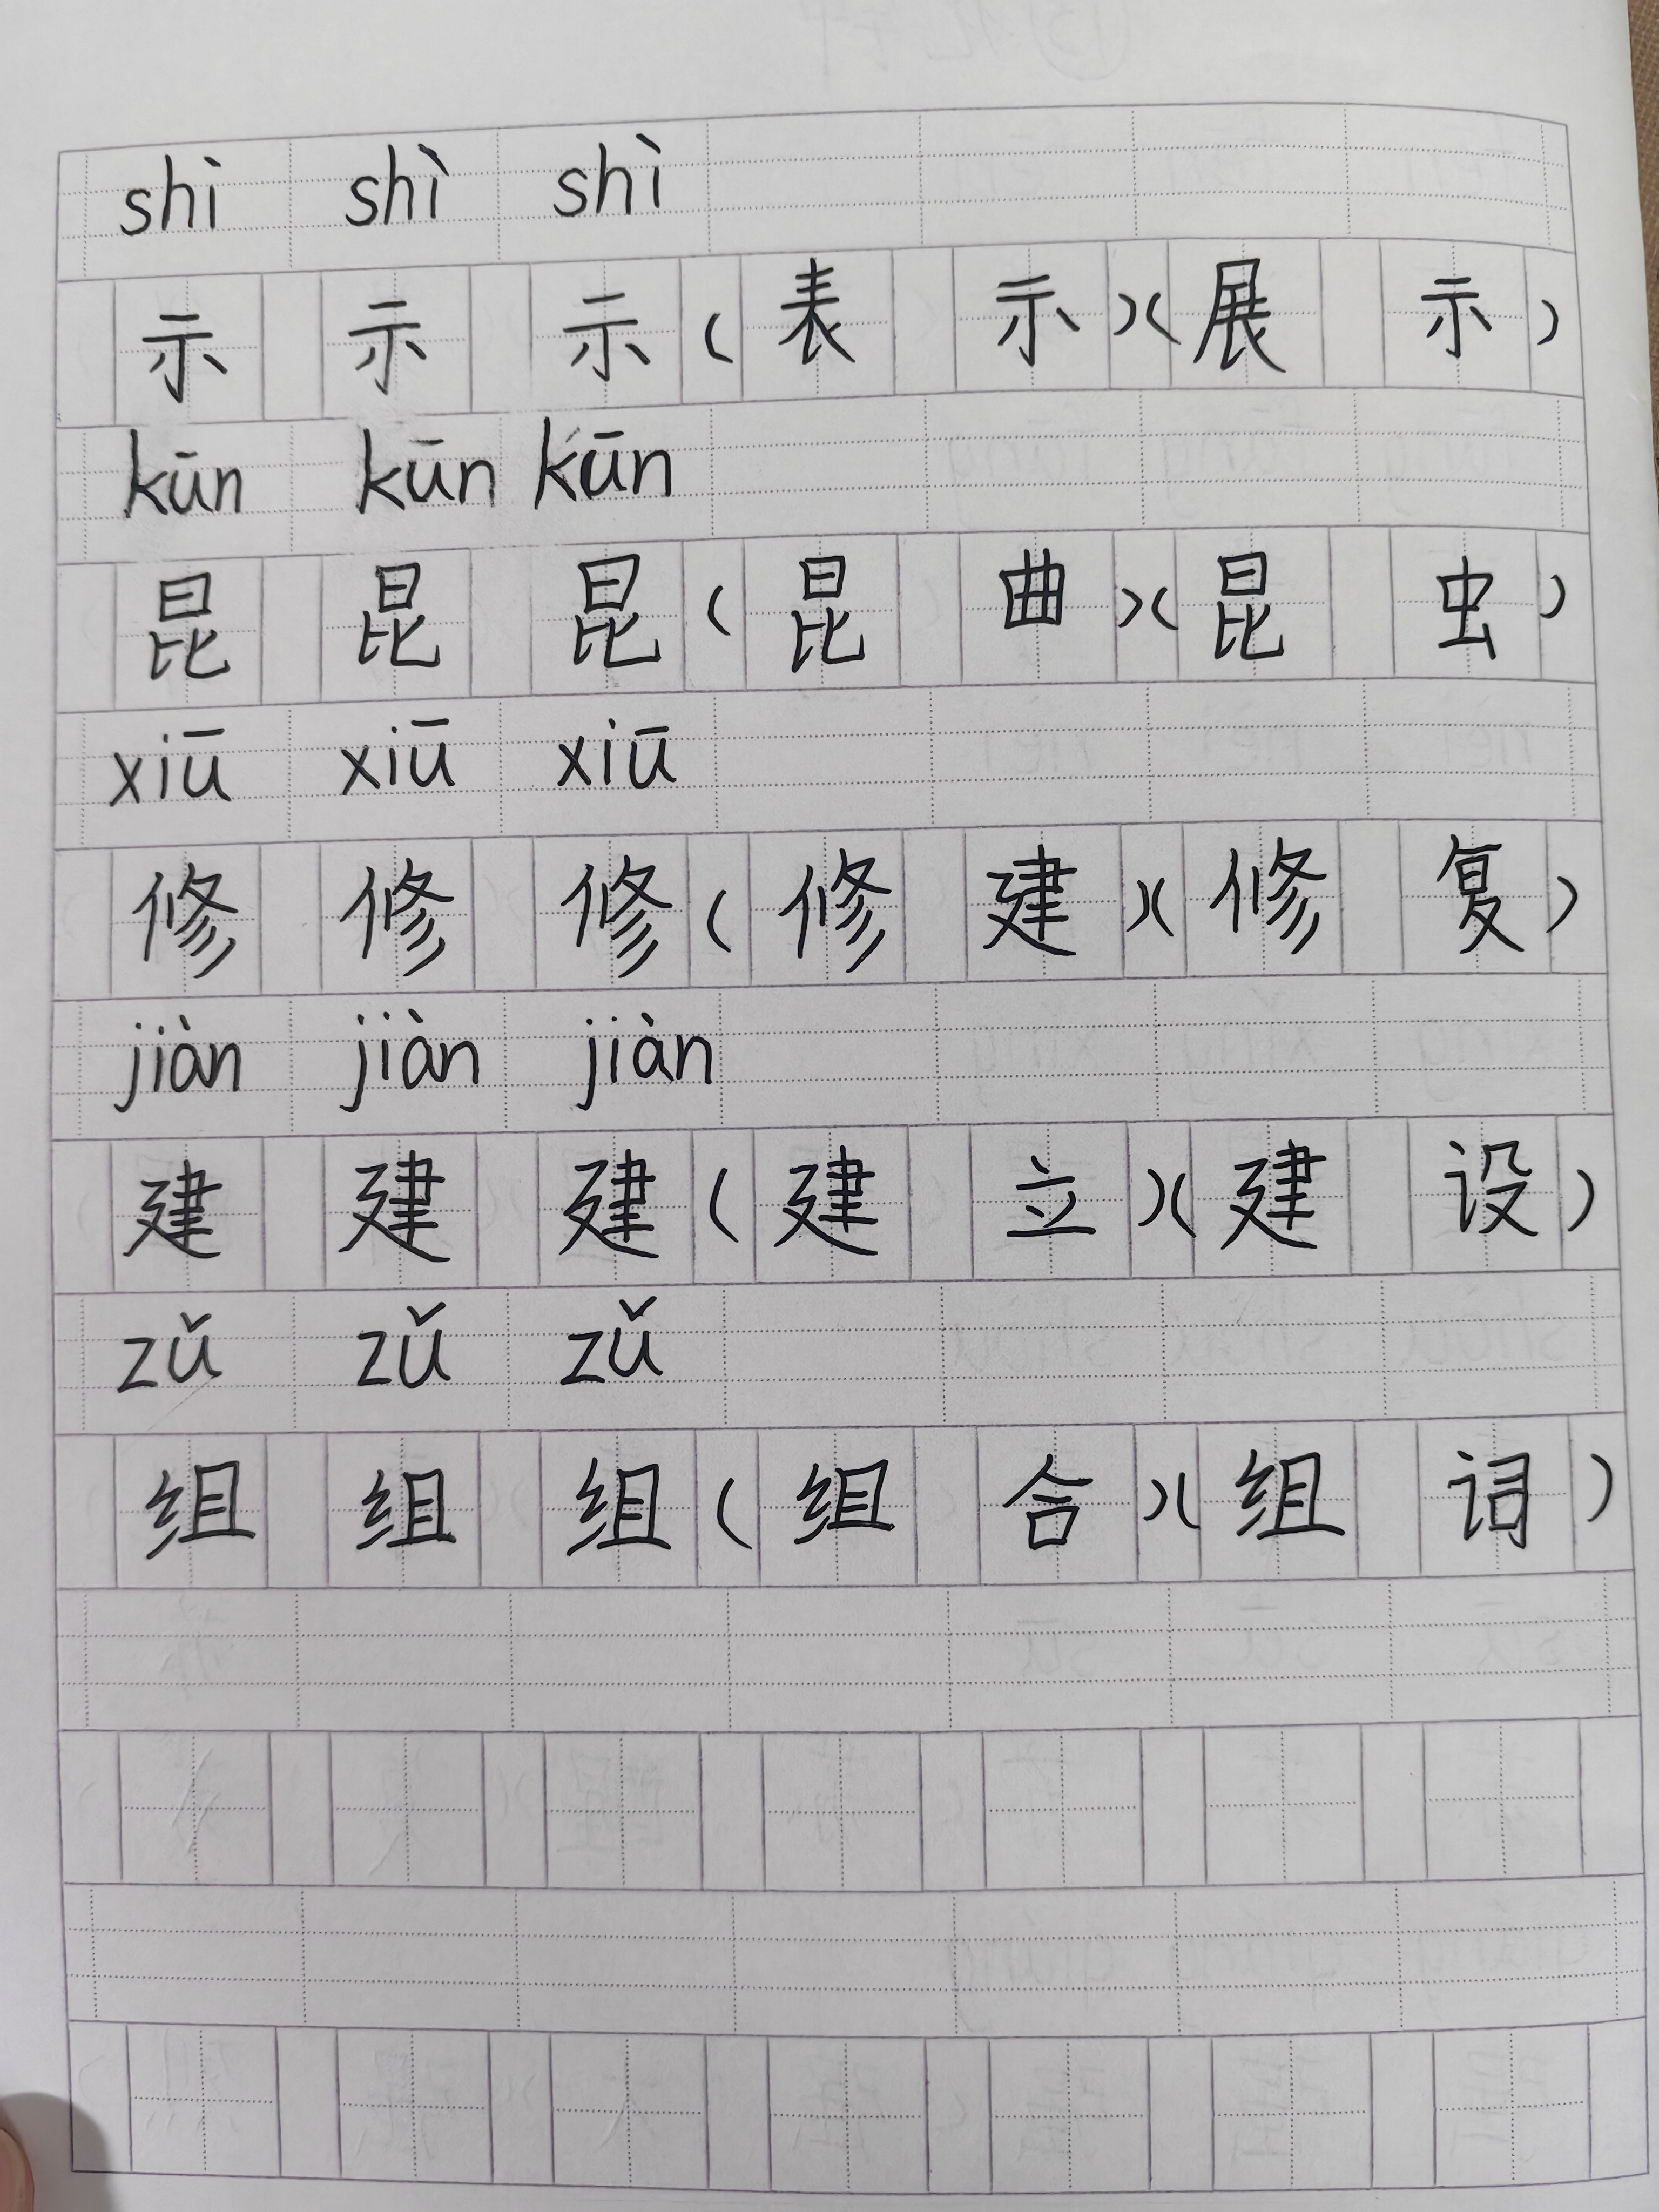 shì shì shì
示 示 示 (表 示)(展 示)
kūn kūn kūn
昆 昆 昆 (昆 曲)(昆 虫)
xiū xiū xiū
修 修 修 (修 建)(修 复)
jiàn jiàn jiàn
建 建 建 (建 立)(建 设)
zǔ zǔ zǔ
组 组 组 (组 合)(组 词)